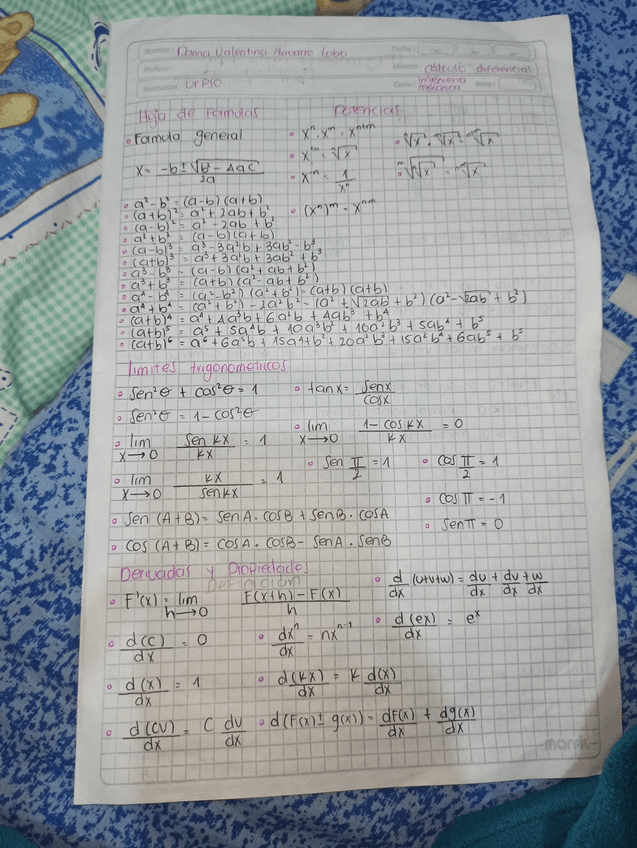 Nombre: Danna Valentina Navarro Lobo Fecha:
Profesor: Materia: cálculo diferencial
Institución: UFPSO Curso: Ingenieria mecanica Nota:
Hoja de Formulas
• Formula general
X = -b ± √b - 4ac / 2a
Potencias
• xⁿ · xᵐ = xⁿ⁺ᵐ
• ⁿ√x · ⁿ√x = ⁿ√x
• x = ⁿ√x
• ᵐ√ⁿ√x = √x
• x⁻ⁿ = 1 / xⁿ
• (xⁿ)ᵐ = xⁿᵐ
• a² - b² = (a-b) (a+b)
• (a+b)² = a² + 2ab + b²
• (a-b)² = a² - 2ab + b²
• a² + b² = (a-b) (a+b)
• (a-b)³ = a³ - 3a²b + 3ab² - b³
• (a+b)³ = a³ + 3a²b + 3ab² + b³
• a³ - b³ = (a-b) (a² + ab + b²)
• a³ + b³ = (a+b) (a² - ab + b²)
• a⁴ - b⁴ = (a² - b²) (a² + b²) = (a+b) (a+b)
• a⁴ + b⁴ = (a² + b²) - 2a²b² = (a² + √2ab + b²) (a² - √2ab + b²)
• (a+b)⁴ = a⁴ + 4a³b + 6a²b + 4ab³ + b⁴
• (a+b)⁵ = a⁵ + 5a⁴b + 10a³b² + 10a²b³ + 5ab⁴ + b⁵
• (a+b)⁶ = a⁶ + 6a⁵b + 15a⁴b² + 20a³b³ + 15a²b⁴ + 6ab⁵ + b⁶
limites trigonometricos
• Sen²θ + cos²θ = 1
• tan x = Sen x / cos x
• Sen²θ = 1 - cos²θ
• lim x→0 Sen kx / kx = 1
• lim x→0 1 - cos kx / kx = 0
• Sen π/2 = 1
• cos π/2 = 1
• lim x→0 kx / sen kx = 1
• cos π = -1
• Sen (A+B) = Sen A · cos B + Sen B · cos A
• Sen π = 0
• cos (A+B) = cos A · cos B - Sen A · Sen B
Derivadas y propiedades
Definición
• d/dx (u+v+w) = du/dx + dv/dx + w/dx
• F'(x) = lim h→0 F(x+h) - F(x) / h
• d(ex)/dx = eˣ
• d(c)/dx = 0
• dxⁿ/dx = nxⁿ⁻¹
• d(x)/dx = 1
• d(kx)/dx = k d(x)/dx
• d(cv)/dx = c dv/dx
• d(F(x) ± g(x)) = dF(x)/dx + dg(x)/dx
marfil